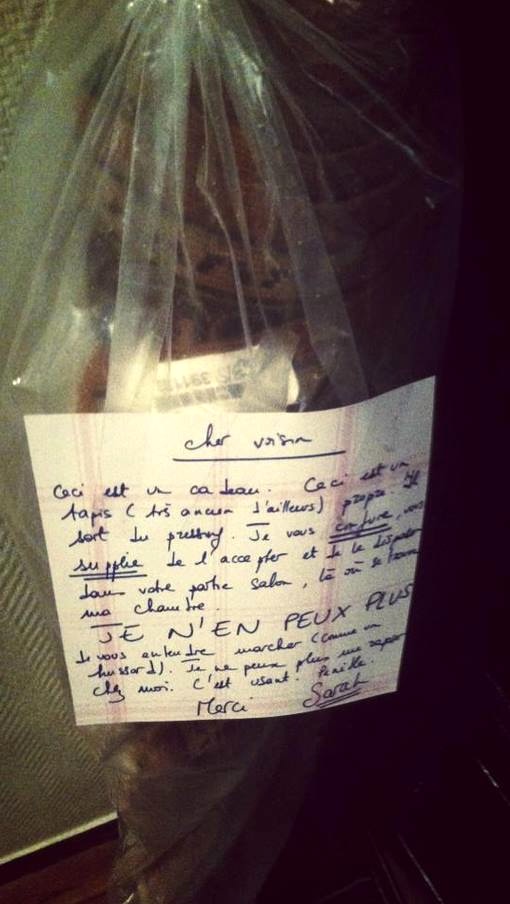 cher voisin
Ceci est un cadeau. Ceci est un
tapis (très ancien d'ailleurs) propre. Il
sort du pressing. Je vous conjure, vous
supplie de l'accepter et de le disposer
dans votre partie salon, là où se trouve
ma chambre.
JE N'EN PEUX PLUS
de vous entendre marcher (comme un
hussard). Je ne peux plus me reposer
chez moi. C'est usant. Pénible.
Merci Sarah